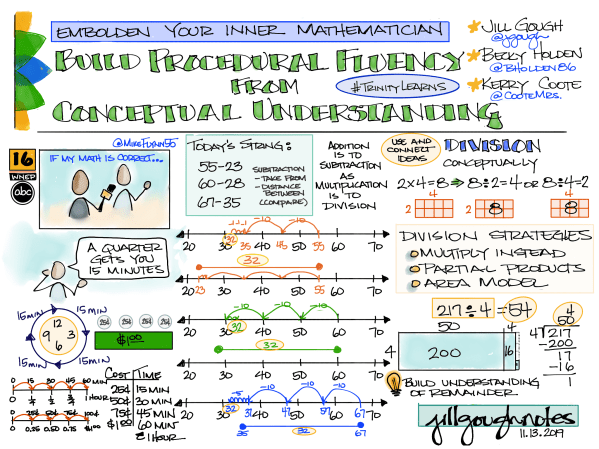 EMBOLDEN YOUR INNER MATHEMATICIAN
BUILD PROCEDURAL FLUENCY
FROM
CONCEPTUAL UNDERSTANDING
#TRINITYLEARNS
JILL GOUGH
@jgough
BECKY HOLDEN
@BHOLDEN86
KERRY COOTE
@COOTEMRS.
@MikeFlynn55
16
WNEP
abc
IF MY MATH IS CORRECT...
A QUARTER
GETS YOU
15 MINUTES
TODAY'S STRING:
55-23
60-28
67-35
SUBTRACTION
-TAKE FROM
-DISTANCE
BETWEEN
(COMPARE)
ADDITION
IS TO
SUBTRACTION
AS
MULTIPLICATION
IS TO
DIVISION
USE AND
CONNECT
IDEAS
DIVISION
CONCEPTUALLY
2×4=8 ⇒ 8÷2=4 OR 8÷4=2
4
2
2
8
4
8
DIVISION STRATEGIES
MULTIPLY INSTEAD
PARTIAL PRODUCTS
AREA MODEL
217÷4=54
50
4
4
200
16
4
50
4 217
-200
17
-16
1
BUILD UNDERSTANDING
OF REMAINDER
jillgoughnotes
11.13.2019
-1-1-1
-10
-10
32
35
45
55
20
30
40
50
60
70
32
23
55
20
30
40
50
60
70
-10
-10
-10
32
20
30
40
50
60
70
32
20
30
40
50
60
70
-5
-10
-10
-10
32
37
47
57
67
20
30
40
50
60
70
35
32
67
15MIN
15MIN
15MIN
15MIN
12
9
3
6
25¢
25¢
25¢
25¢
$1.00
0
15
30
45
60 MIN
0
1/4
1/2
3/4
1 HOUR
0
25¢
50¢
75¢
100¢
0
0.25
0.50
0.75
$1.00
COST
TIME
25¢
15 MIN
50¢
30 MIN
75¢
45 MIN
$1.00
60 MIN
1 HOUR